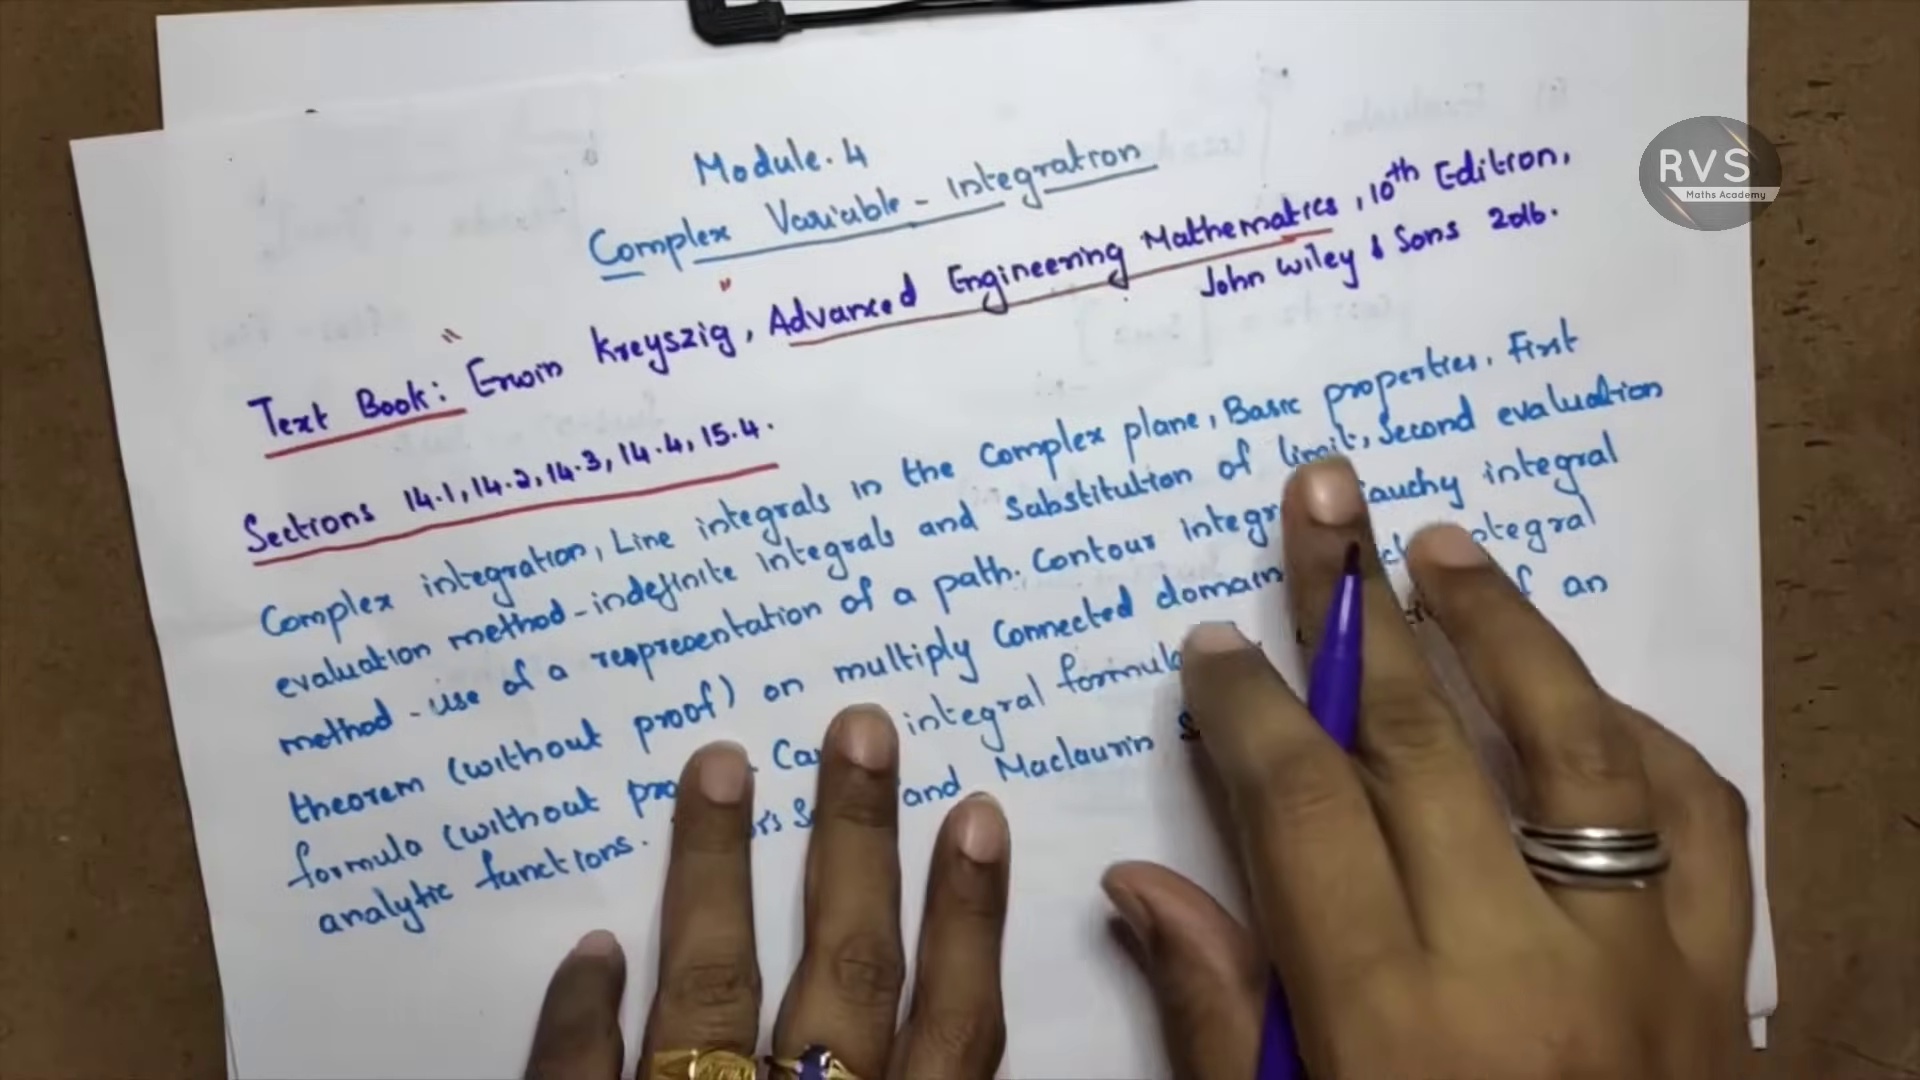 Module. 4
Complex Variable - Integration
Text Book: Erwin Kreyszig, Advanced Engineering Mathematics, 10th Edition,
John Wiley & Sons 2016.
Sections 14.1, 14.2, 14.3, 14.4, 15.4.
Complex integration, Line integrals in the Complex plane, Basic properties. First
evaluation method - indefinite integrals and Substitution of limit, Second evaluation
method - use of a representation of a path. Contour integrals, Cauchy integral
theorem (without proof) on multiply Connected domain integral
formula (without integral formula of an
analytic functions. and Maclaurin
RVS
Maths Academy